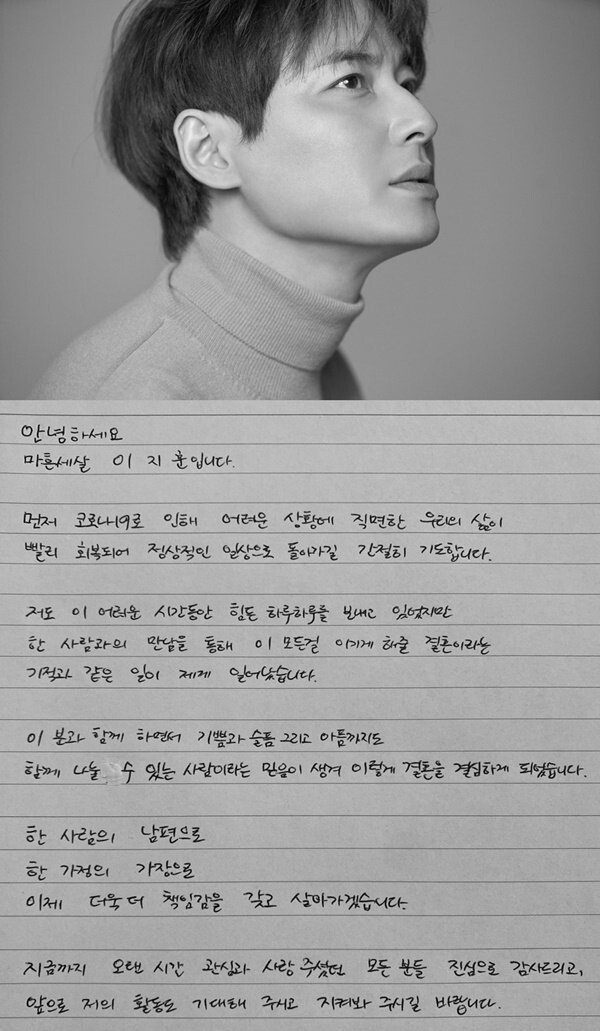 안녕하세요
마흔세살 이지훈입니다.
먼저 코로나19로 인해 어려운 상황에 직면한 우리의 삶이
빨리 회복되어 정상적인 일상으로 돌아가길 간절히 기도합니다.
저도 이 어려운 시간동안 힘든 하루하루를 보내고 있었지만
한 사람과의 만남을 통해 이 모든걸 이기게 해줄 결혼이라는
기적과 같은 일이 제게 일어났습니다.
이 분과 함께 하면서 기쁨과 슬픔 그리고 아픔까지도
함께 나눌 수 있는 사람이라는 믿음이 생겨 이렇게 결혼을 결심하게 되었습니다.
한 사람의 남편으로
한 가정의 가장으로
이제 더욱 더 책임감을 갖고 살아가겠습니다.
지금까지 오랜 시간 관심과 사랑 주셨던 모든 분들 진심으로 감사드리고,
앞으로 저의 활동도 기대해 주시고 지켜봐 주시길 바랍니다.